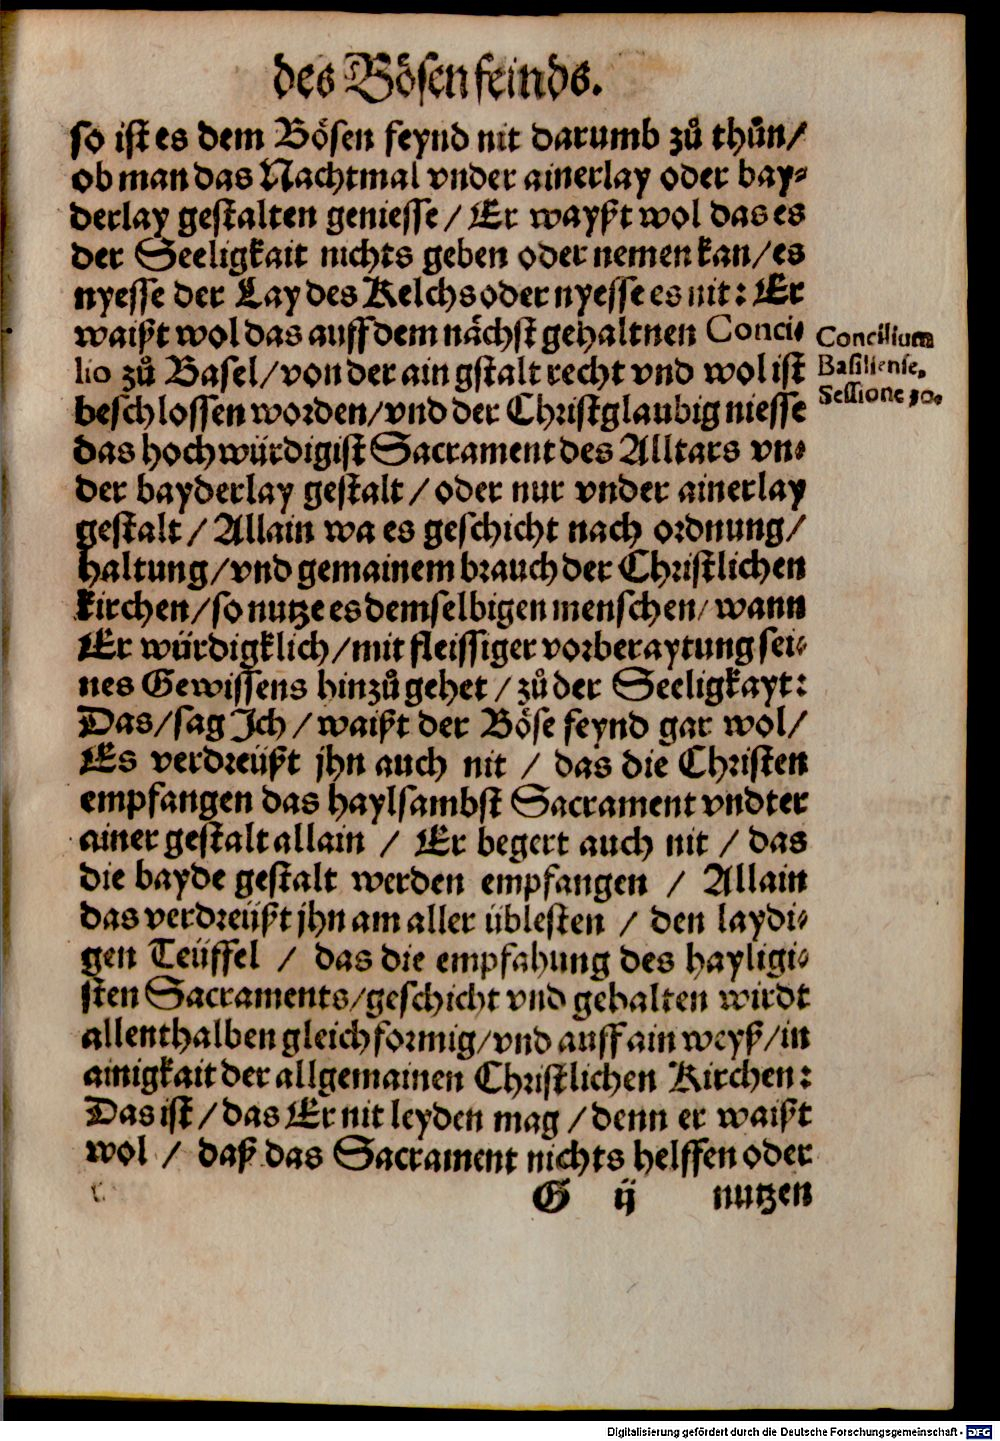 des Bösen feinds.
so ist es dem Bösen feynd nit darumb zů thůn/
ob man das Nachtmal vnder ainerlay oder bay⸗
derlay gestalten geniesse / Er wayßt wol das es
der Seeligkait nichts geben oder nemen kan/es
nyesse der Lay des Kelchs oder nyesse es nit: Er
waißt wol das auff dem nächst gehaltnen Conci⸗
lio zů Basel/von der ain gstalt recht vnd wol ist
beschlossen worden/vnd der Christglaubig niesse
das hochwürdigist Sacrament des Alltars vn⸗
der bayderlay gestalt / oder nur vnder ainerlay
gestalt / Allain wa es geschicht nach ordnung/
haltung/vnd gemainem brauch der Christlichen
kirchen/so nutze es demselbigen menschen/wann
Er würdigklich/mit fleissiger vorberaytung sei⸗
nes Gewissens hinzů gehet / zů der Seeligkayt:
Das/sag Ich / waißt der Böse feynd gar wol/
Es verdreüßt jhn auch nit / das die Christen
empfangen das haylsambst Sacrament vndter
ainer gestalt allain / Er begert auch nit / das
die bayde gestalt werden empfangen / Allain
das verdreüßt jhn am aller üblesten / den laydi⸗
gen Teüffel / das die empfahung des hayligi⸗
sten Sacraments/geschicht vnd gehalten wirdt
allenthalben gleichformig/vnd auff ain weyß/in
ainigkait der allgemainen Christlichen Kirchen:
Das ist / das Er nit leyden mag / denn er waißt
wol / daß das Sacrament nichts helffen oder
G ij nutzen
Concilium
Basiliense,
Sessione 30.
Digitalisierung gefördert durch die Deutsche Forschungsgemeinschaft - DFG